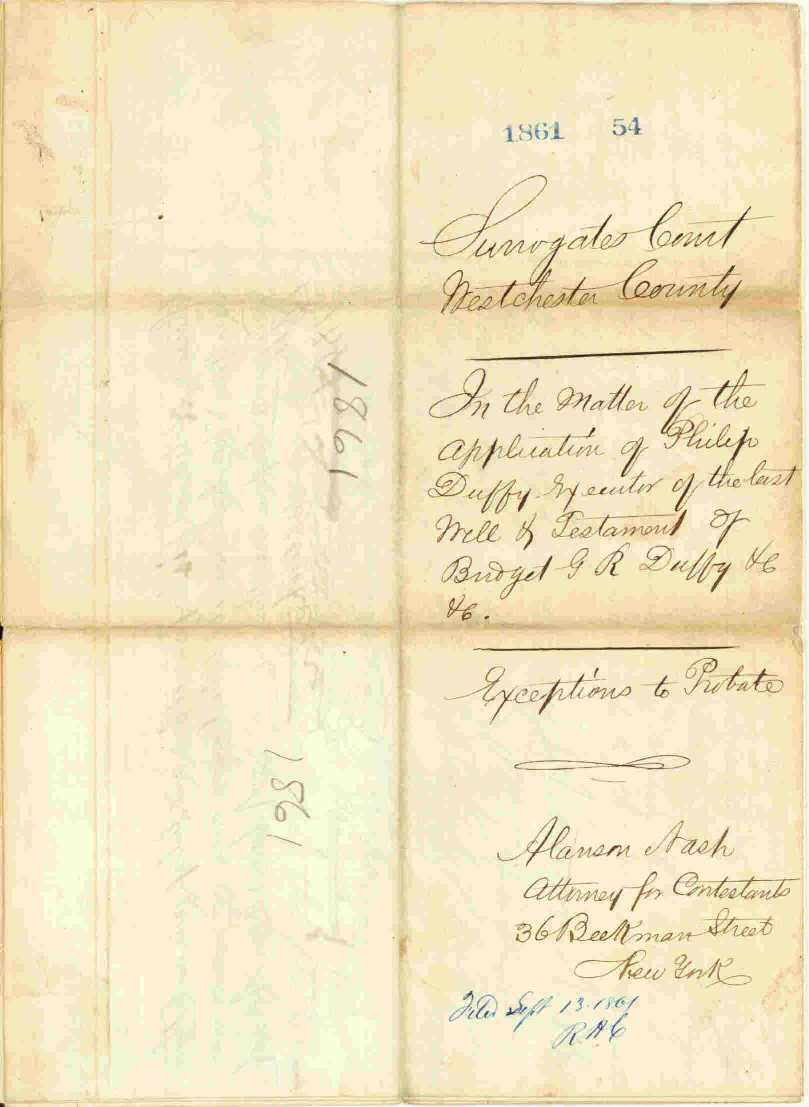 1861 54
Surrogates Court
Westchester County
In the Matter of the
Application of Philip
Duffy Executor of the last
Will & Testament of
Bridget G R Duffy &c
&c.
Exceptions to Probate
Alanson Nash
Attorney for Contestants
36 Beekman Street
New York
Filed Sept 13. 1861
R.H.C
1861
1861